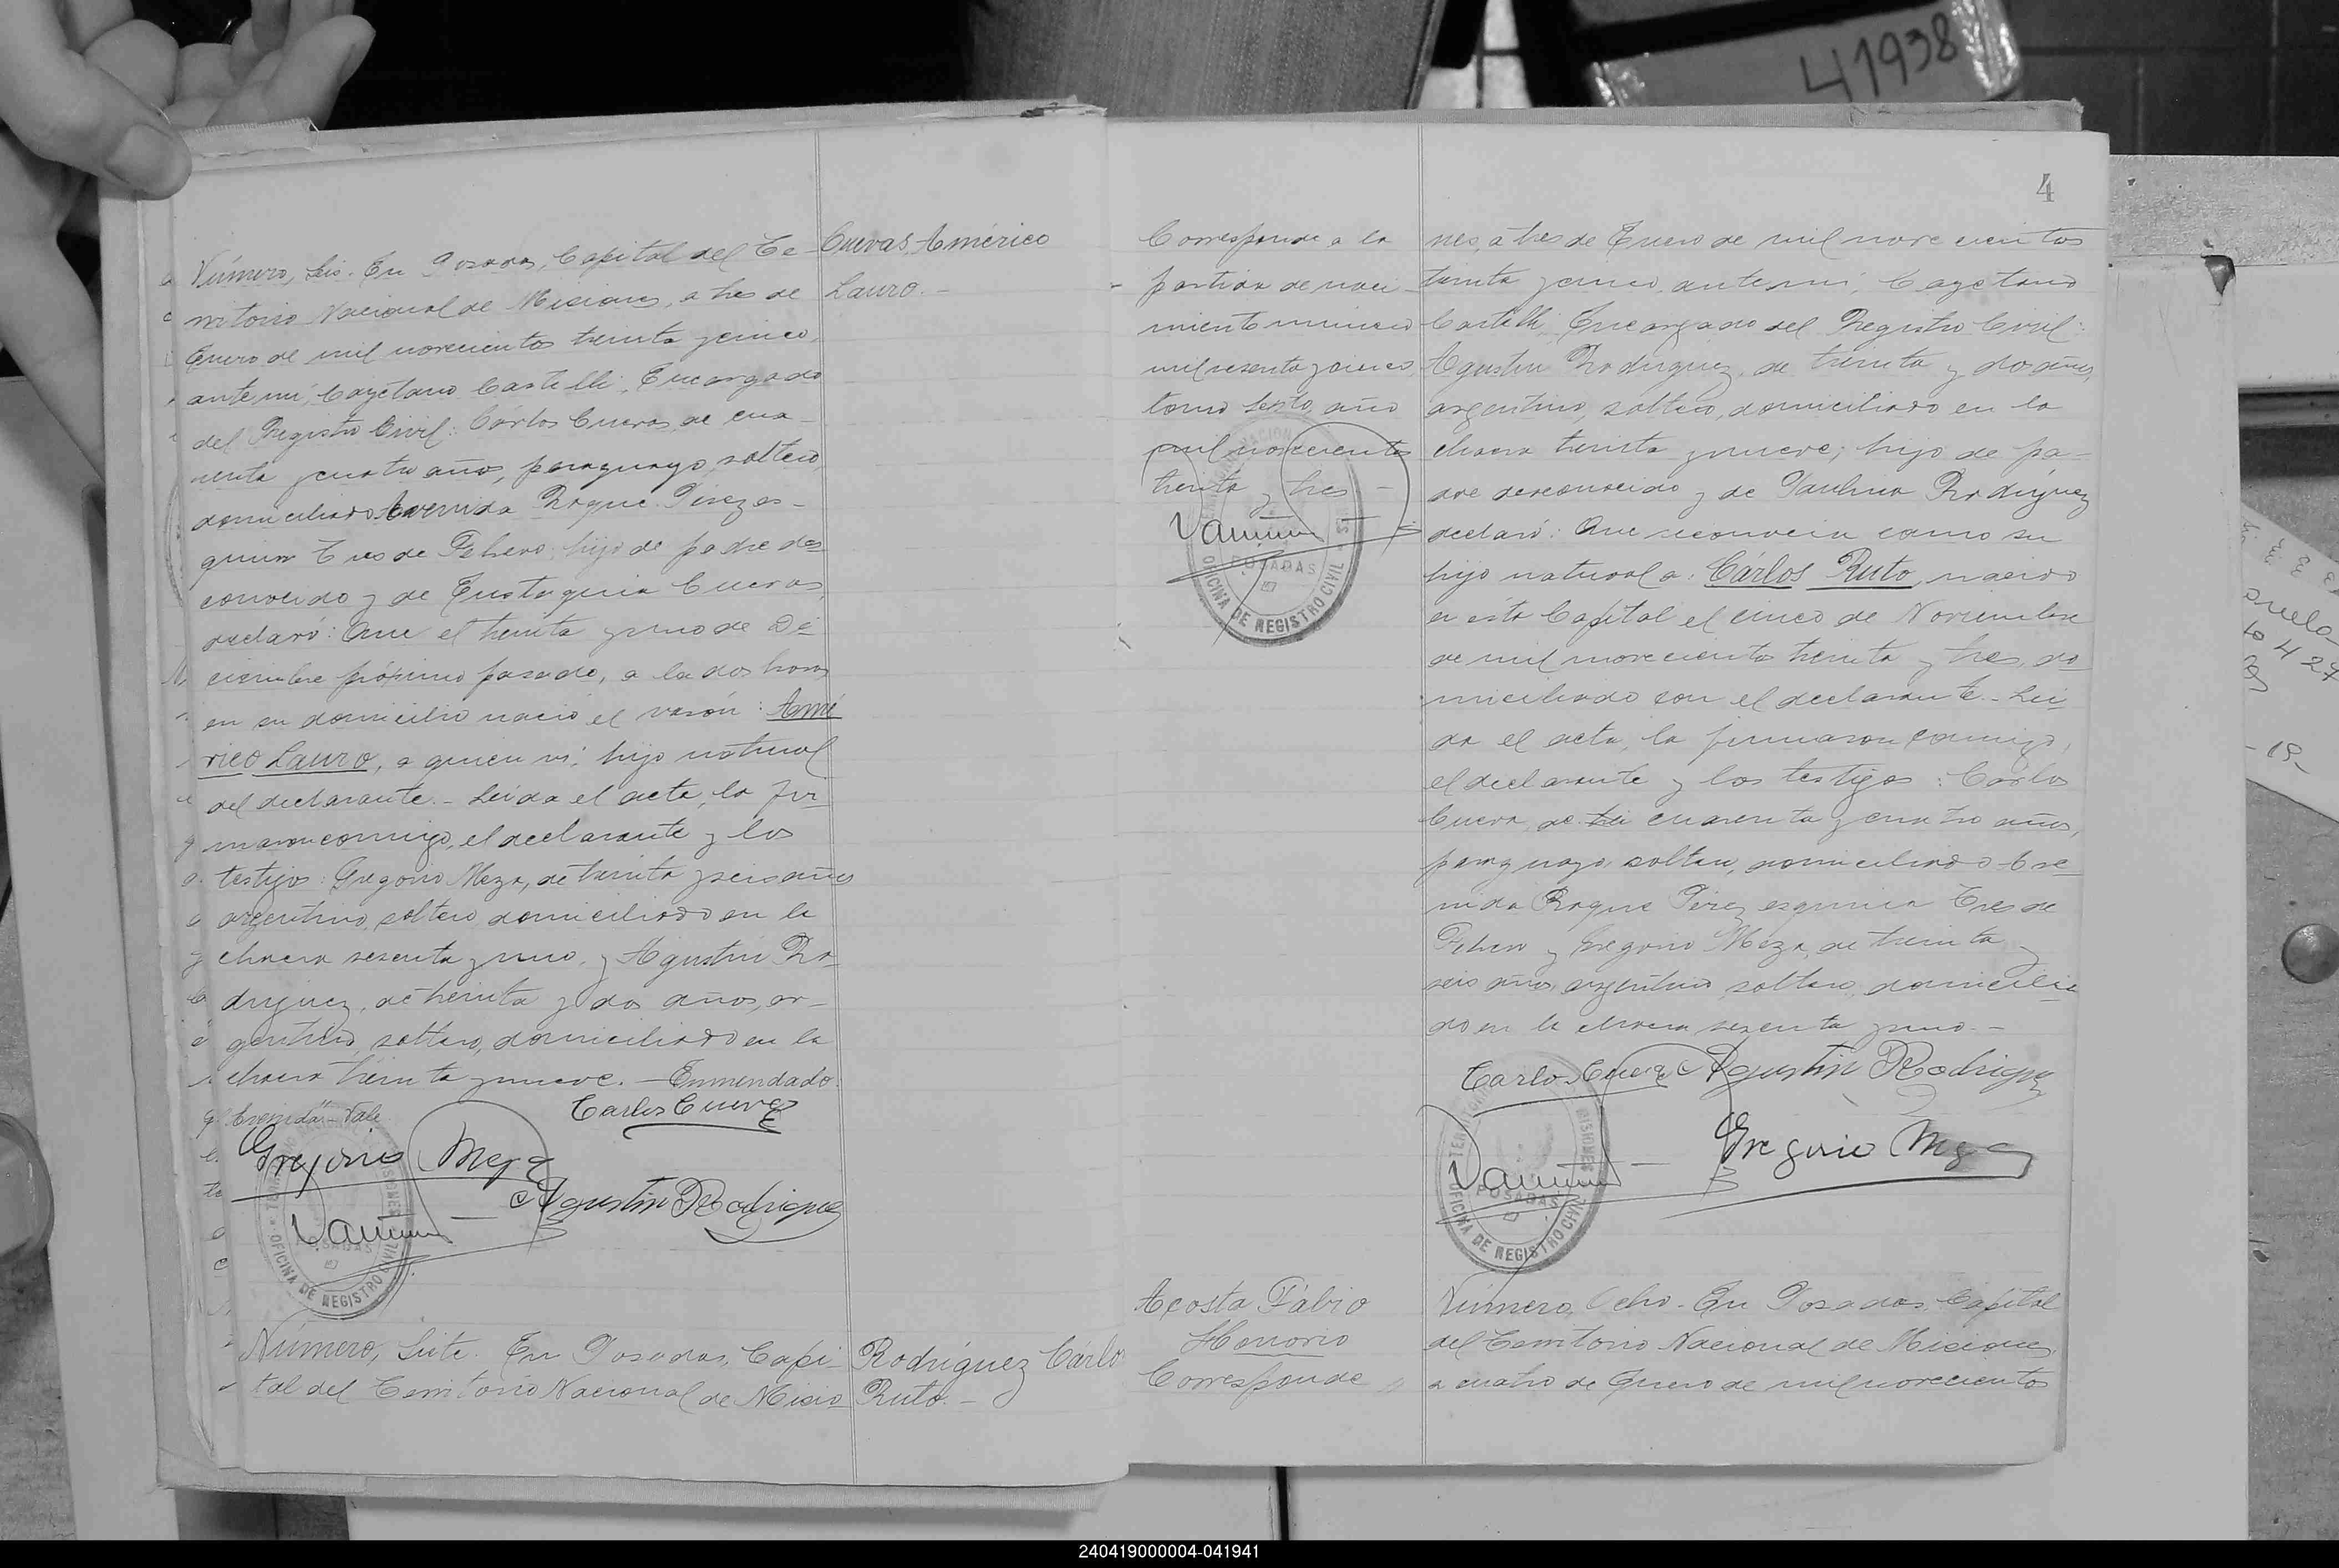 41938
Número, Seis. En Posadas, Capital del Te-
rritorio Nacional de Misiones, a tres de
Enero de mil novecientos treinta y cinco,
ante mí, Cayetano Castelli, Encargado
del Registro Civil: Carlos Cuevas, de cua-
renta y cuatro años, paraguayo, soltero,
domiciliado Avenida Roque Pérez es-
quina Tres de Febrero, hijo de padre des-
conocido y de Eustaquia Cuevas,
declaró: Que el treinta y uno de Di-
ciembre próximo pasado, a las dos horas
en su domicilio nació el varón: Amé
rico Lauro, a quien ví; hijo natural
del declarante.- Leída el acta, la fir-
maron conmigo, el declarante y los
testigos: Gregorio Meza, de treinta y seis años
argentino, soltero domiciliado en la
chacra sesenta y uno, y Agustín Ro-
dríguez, de treinta y dos años, ar-
gentino, soltero, domiciliado en la
chacra treinta y nueve. - Enmendado:
"Avenida" - Vale
Carlos Cueva
Gregorio Meza
Agustin Rodriguez
OFICINA DE REGISTRO CIVIL
POSADAS
Cuevas, Américo
Lauro.-
Número, Siete. En Posadas, Capi-
tal del Territorio Nacional de Misio
Rodríguez Cárlo
Ruto.-
4
Corresponde a la
partida de naci-
miento número
mil sesenta y cinco,
tomo sexto, año
mil novecientos
treinta y tres -
POSADAS
OFICINA DE REGISTRO CIVIL
nes, a tres de Enero de mil novecientos
treinta y cinco, ante mí, Cayetano
Castelli, Encargado del Registro Civil:
Agustín Rodríguez, de treinta y dos años,
argentino, soltero, domiciliado en la
chacra treinta y nueve; hijo de pa-
dre desconocido y de Paulina Rodríguez
declaró: Que reconocía como su
hijo natural a: Cárlos Ruto, nacido
en esta Capital el cinco de Noviembre
de mil novecientos treinta y tres, do
miciliado con el declarante.- Leí-
da el acta, la firmaron conmigo,
el declarante y los testigos: Carlos
Cueva, de cuarenta y cuatro años,
paraguayo, soltero, domiciliado Ave-
nida Roque Pérez esquina Tres de
Febrero y Gregorio Meza, de treinta y
seis años, argentino, soltero, domicilia
do en la chacra sesenta y uno.-
Carlos Cueva
Agustin Rodriguez
Gregorio Meza
MISIONES
POSADAS
OFICINA DE REGISTRO CIVIL
Acosta Fabio
Honorio
Corresponde
Número, Ocho. En Posadas, Capital
del Territorio Nacional de Misiones,
a cuatro de Enero de mil novecientos
240419000004-041941